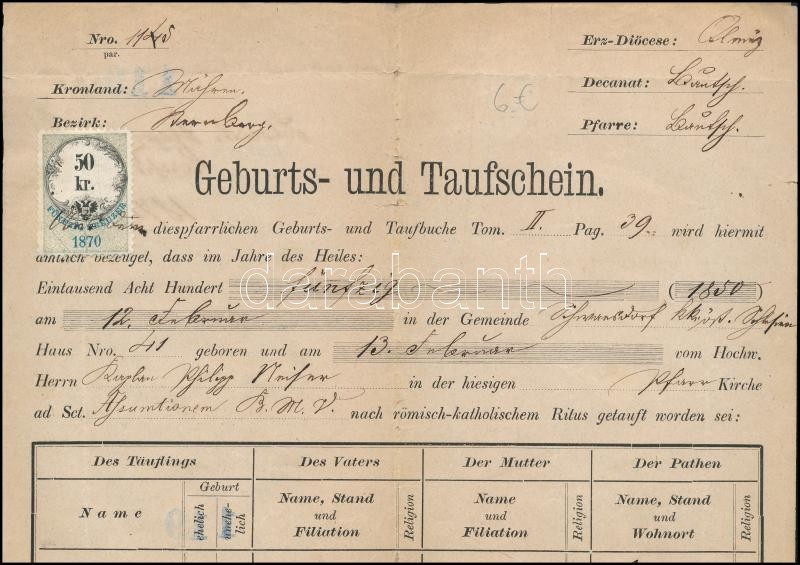 Nro. 1145
par.
Erz-Diöcese: Olmüz
Kronland: Mähren.
6€
Decanat: Bautsch.
Bezirk: Sternberg.
Pfarre: Bautsch.
50
kr.
1870
Geburts- und Taufschein.
diespfarrlichen Geburts- und Taufbuche Tom. II. Pag. 39 wird hiermit
amtlich bezeuget, dass im Jahre des Heiles:
Eintausend Acht Hundert fünfzig (1850)
darabanth
am 12. Februar in der Gemeinde Schwansdorf Schlesien
Haus Nro. 41 geboren und am 13. Februar vom Hochw.
Herrn Kaplan Philipp Neiser in der hiesigen Pfarr Kirche
ad Sct. Assumtionem B. M. V. nach römisch-katholischem Ritus getauft worden sei:
Des Täuflings Des Vaters Der Mutter Der Pathen
Name
Geburt
ehelich
unehe-
lich
Name, Stand
und
Filiation
Religion
Name
und
Filiation
Religion
Name, Stand
und
Wohnort
Religion